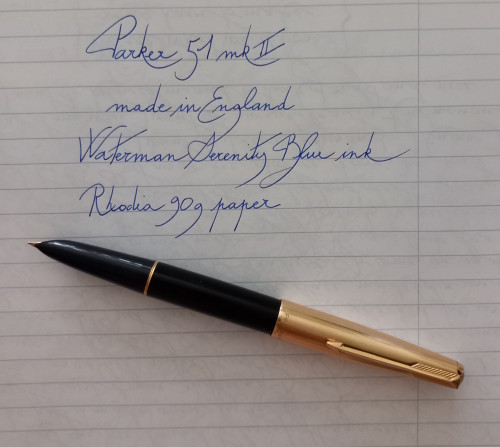 Parker 51 mk II
made in England
Waterman Serenity Blue ink
Rhodia 90g paper